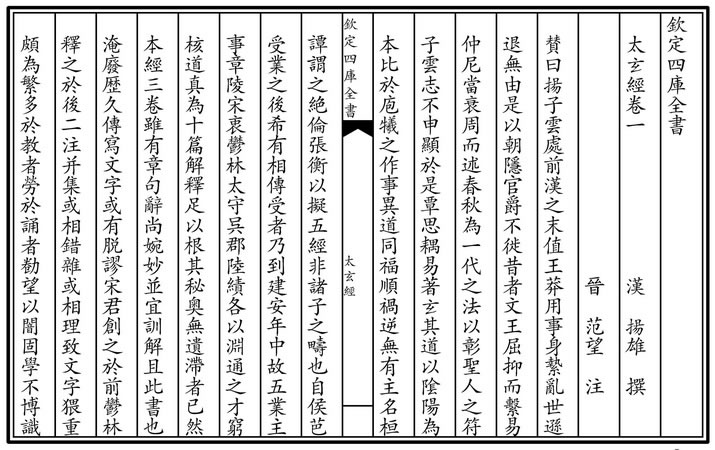 欽定四庫全書
太玄經卷一
漢 揚雄 撰
晉 范望 注
贊曰揚子雲處前漢之末值王莽用事身縶亂世遜
退無由是以朝隱官爵不徙昔者文王屈抑而繫易
仲尼當衰周而述春秋為一代之法以彰聖人之符
子雲志不申顯於是覃思耦易著玄其道以陰陽為
本比於庖犧之作事異道同福順禍逆無有主名桓
欽定四庫全書
太玄經
譚謂之絶倫張衡以擬五經非諸子之疇也自侯芭
受業之後希有相傳受者乃到建安年中故五業主
事章陵宋衷鬱林太守吴郡陸績各以淵通之才窮
核道真為十篇解釋足以根其秘奥無遺滯者已然
本經三卷雖有章句辭尚婉妙並宜訓解且此書也
淹廢歴久傳寫文字或有脱謬宋君創之於前鬱林
釋之於後二注并集或相錯雜或相理致文字猥重
頗為繁多於教者勞於誦者勌望以闇固學不博識